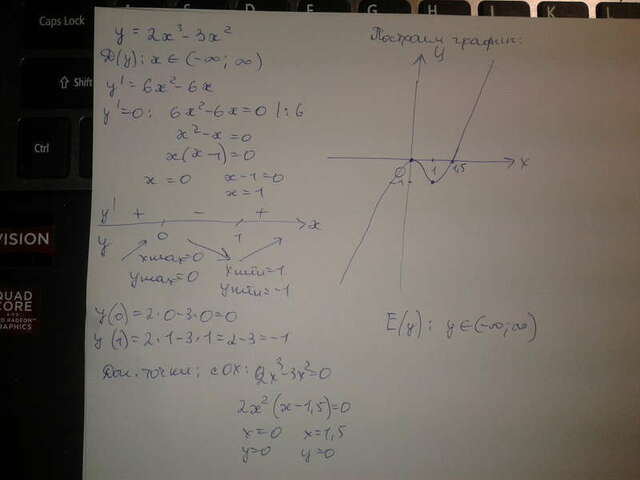 Caps Lock
Shift
Ctrl
VISION
QUAD
CORE
AMD RADEON™
GRAPHICS
y = 2x³ - 3x²
D(y): x ∈ (-∞; ∞)
y' = 6x² - 6x
y' = 0: 6x² - 6x = 0 | : 6
x² - x = 0
x(x - 1) = 0
x = 0 x - 1 = 0
x = 1
y' + - + x
y 0 1
xmax = 0 xmin = 1
ymax = 0 ymin = -1
y(0) = 2·0 - 3·0 = 0
y(1) = 2·1 - 3·1 = 2 - 3 = -1
Доп. точки: с OX: 2x³ - 3x² = 0
2x²(x - 1,5) = 0
x = 0 x = 1,5
y = 0 y = 0
Построим график:
y
0 1 1,5 x
-1
E(y): y ∈ (-∞; ∞)